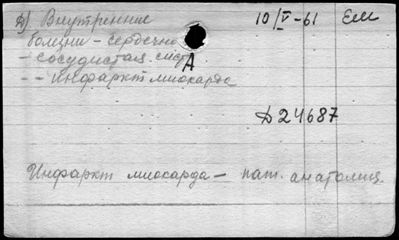 2) Внутренние 10/V-61 Емм
болезни - сердечно
- сосудистая сист
А
- - инфаркт миокарда
Д24687
Инфаркт миокарда - пат. анатомия